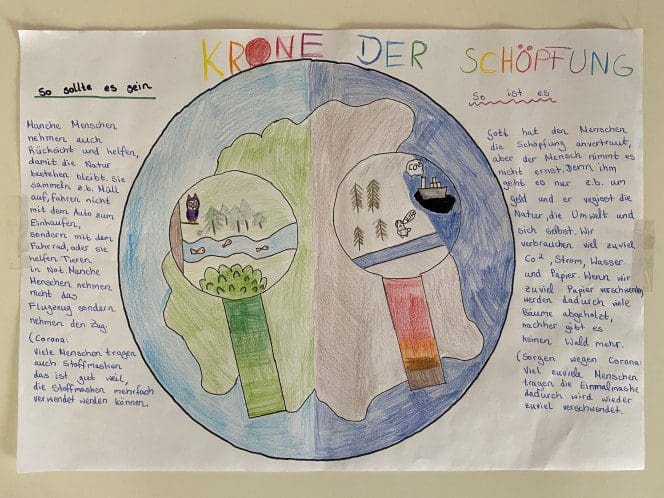 KRONE DER SCHÖPFUNG
So sollte es sein
Manche Menschen
nehmen auch
Rücksicht und helfen,
damit die Natur
bestehen bleibt. Sie
sammeln z.b. Müll
auf, fahren nicht
mit dem Auto zum
Einkaufen,
sondern mit dem
Fahrrad, oder sie
helfen Tieren
in Not. Manche
Menschen nehmen
nicht das
Flugzeug sondern
nehmen den Zug.
(Corona:
Viele Menschen tragen
auch Stoffmasken
das ist gut weil,
die Stoffmasken mehrfach
verwendet werden können.
CO²
So ist es
Gott hat den Menschen
die Schöpfung anvertraut,
aber der Mensch nimmt es
nicht ernst. Denn ihm
geht es nur z.b. um
Geld und er vergisst die
Natur, die Umwelt und
sich selbst. Wir
verbrauchen viel zuviel
Co², Strom, Wasser
und Papier. Wenn wir
zuviel Papier verschwenden,
werden dadurch viele
Bäume abgeholzt,
nachher gibt es
keinen Wald mehr.
(Sorgen wegen Corona:
Viel zuviele Menschen
tragen die Einmalmaske
dadurch wird wieder
zuviel verschwendet.